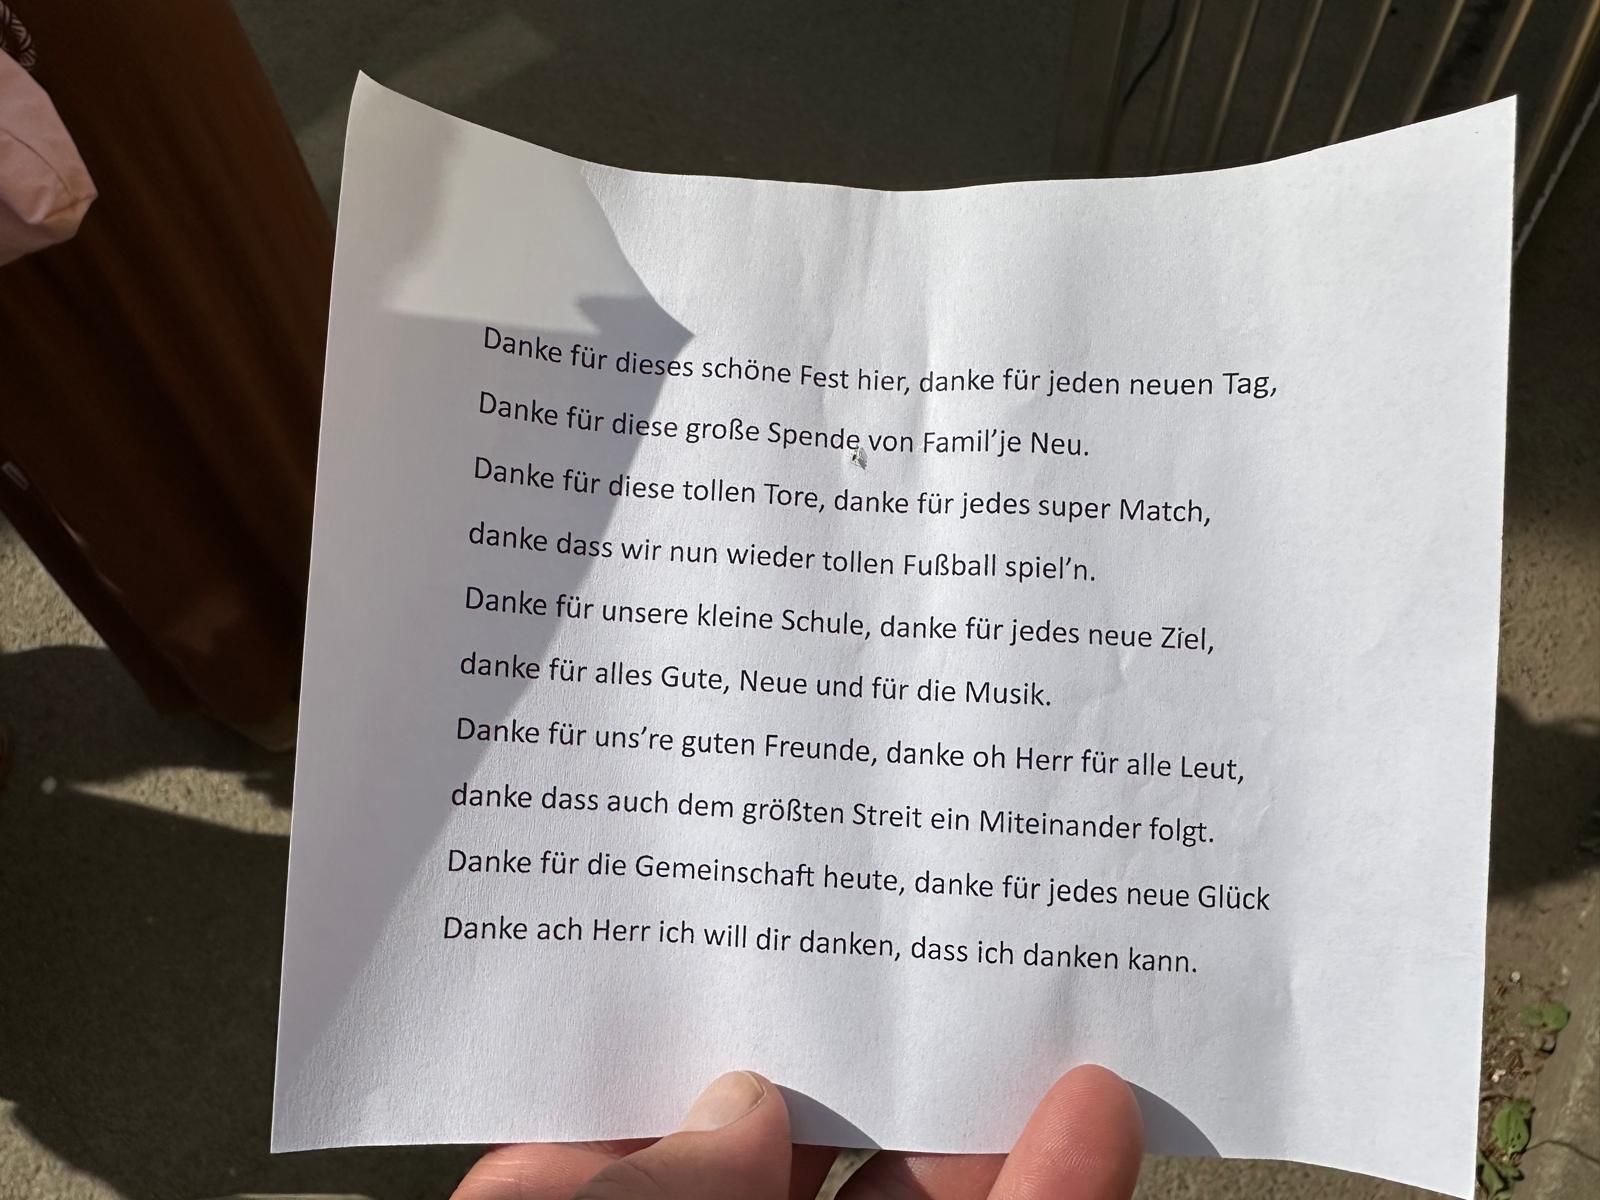 Danke für dieses schöne Fest hier, danke für jeden neuen Tag,
Danke für diese große Spende von Famil’je Neu.
Danke für diese tollen Tore, danke für jedes super Match,
danke dass wir nun wieder tollen Fußball spiel’n.
Danke für unsere kleine Schule, danke für jedes neue Ziel,
danke für alles Gute, Neue und für die Musik.
Danke für uns’re guten Freunde, danke oh Herr für alle Leut,
danke dass auch dem größten Streit ein Miteinander folgt.
Danke für die Gemeinschaft heute, danke für jedes neue Glück
Danke ach Herr ich will dir danken, dass ich danken kann.